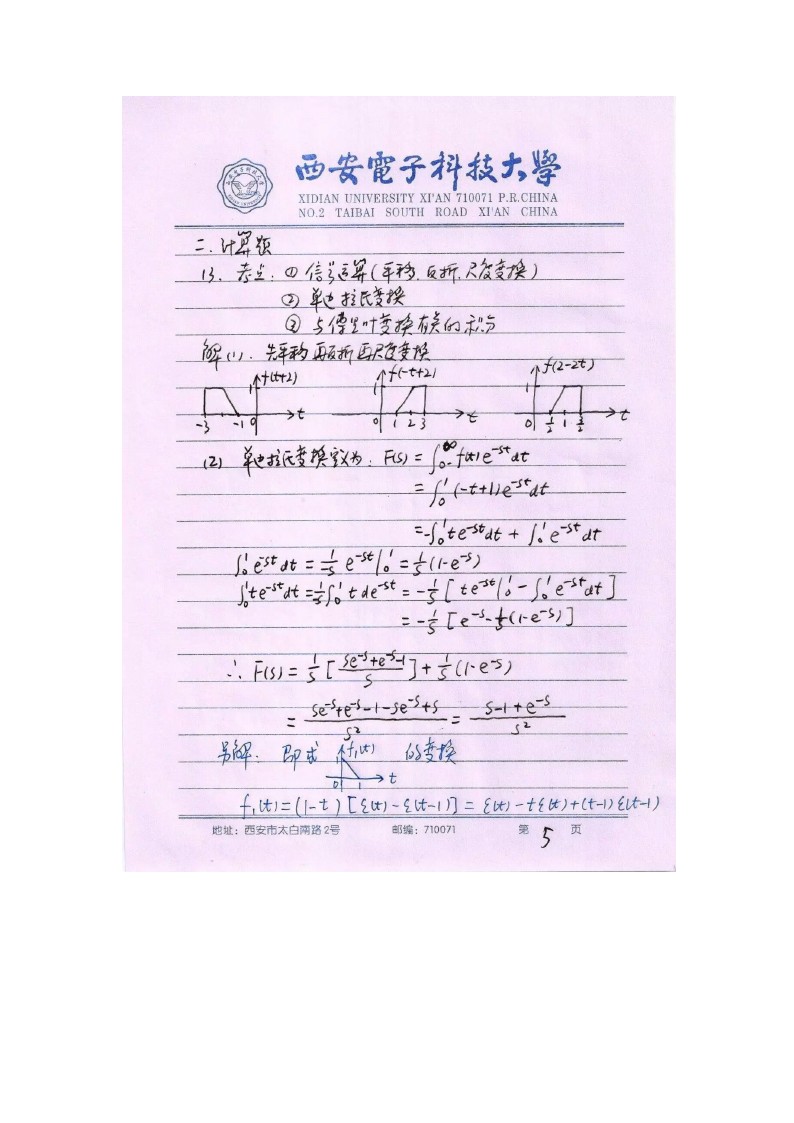 西安電子科技大學
XIDIAN UNIVERSITY XI'AN 710071 P.R.CHINA
NO.2 TAIBAI SOUTH ROAD XI'AN CHINA
二.计算题
13. 考点: ① 信号运算(平移、反折、尺度变换)
② 单边拉氏变换
③ 与傅里叶变换有关的积分
解(1). 先平移再反折再尺度变换
1 f(t+2) -3 -1 0 t
1 f(-t+2) 0 1 2 3 t
1 f(2-2t) 0 1/2 1 3/2 t
(2) 单边拉氏变换定义为: F(s) = ∫₀₋^∞ f(t)e^{-st}dt
= ∫₀¹ (-t+1)e^{-st}dt
= -∫₀¹ te^{-st}dt + ∫₀¹ e^{-st}dt
∫₀¹ e^{-st}dt = 1/-s e^{-st}|₀¹ = 1/s (1-e^{-s})
∫₀¹ te^{-st}dt = 1/-s ∫₀¹ t de^{-st} = -1/s [te^{-st}|₀¹ - ∫₀¹ e^{-st}dt]
= -1/s [e^{-s} - 1/s (1-e^{-s})]
∴ F(s) = 1/s [(se^{-s}+e^{-s}-1)/s] + 1/s (1-e^{-s})
= (se^{-s}+e^{-s}-1-se^{-s}+s)/s² = (s-1+e^{-s})/s²
另解: 即求 1 f₁(t) 0 1 t 的变换
f₁(t) = (1-t)[ε(t)-ε(t-1)] = ε(t)-tε(t)+(t-1)ε(t-1)
地址: 西安市太白南路2号 邮编: 710071 第 5 页